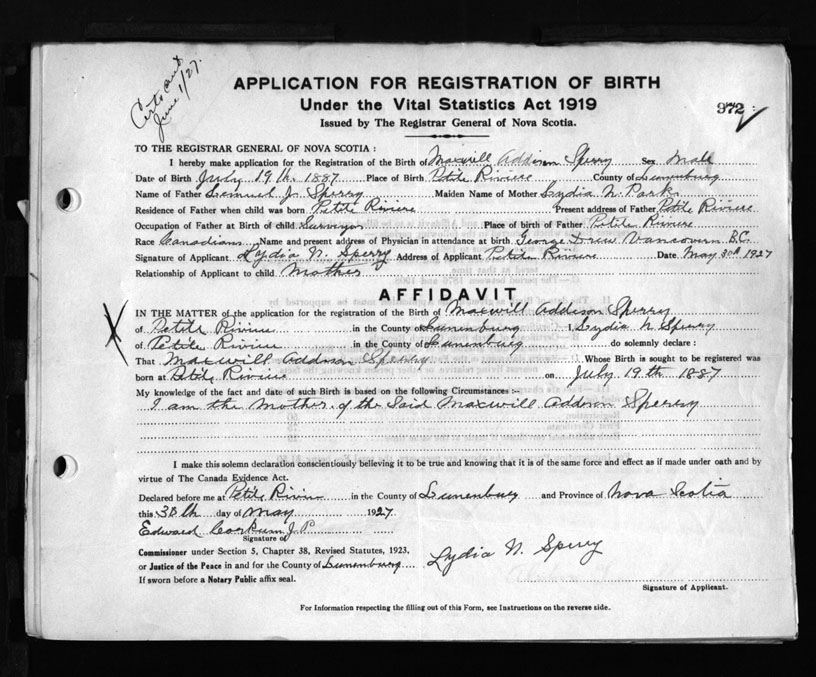 Certs out
June 1/27.
APPLICATION FOR REGISTRATION OF BIRTH
Under the Vital Statistics Act 1919
972
Issued by The Registrar General of Nova Scotia.
TO THE REGISTRAR GENERAL OF NOVA SCOTIA :
I hereby make application for the Registration of the Birth of Maxwill Addison Sperry Sex Male
Date of Birth July 19th 1887 Place of Birth Petite Riviere County of Lunenburg
Name of Father Lemuel J. Sperry Maiden Name of Mother Lydia N. Park
Residence of Father when child was born Petite Riviere Present address of Father Petite Riviere
Occupation of Father at Birth of child Surveyor Place of birth of Father Petite Riviere
Race Canadians Name and present address of Physician in attendance at birth George Drew Vancouver B.C.
Signature of Applicant Lydia N. Sperry Address of Applicant Petite Riviere Date May 30th 1927
Relationship of Applicant to child Mother
AFFIDAVIT
IN THE MATTER of the application for the registration of the Birth of Maxwill Addison Sperry
of Petite Riviere in the County of Lunenburg I, Lydia N Sperry
of Petite Riviere in the County of Lunenburg do solemnly declare :
That Maxwill Addison Sperry Whose Birth is sought to be registered was
born at Petite Riviere on July 19th 1887
My knowledge of the fact and date of such Birth is based on the following Circumstances :-
I am the Mother of the Said Maxwill Addison Sperry
I make this solemn declaration conscientiously believing it to be true and knowing that it is of the same force and effect as if made under oath and by
virtue of The Canada Evidence Act.
Declared before me at Petite Riviere in the County of Lunenburg and Province of Nova Scotia
this 30th day of May 1927
Edward Corkum J.P.
Signature of
Commissioner under Section 5, Chapter 38, Revised Statutes, 1923,
or Justice of the Peace in and for the County of Lunenburg
Lydia N. Sperry
If sworn before a Notary Public affix seal.
Signature of Applicant.
For Information respecting the filling out of this Form, see Instructions on the reverse side.